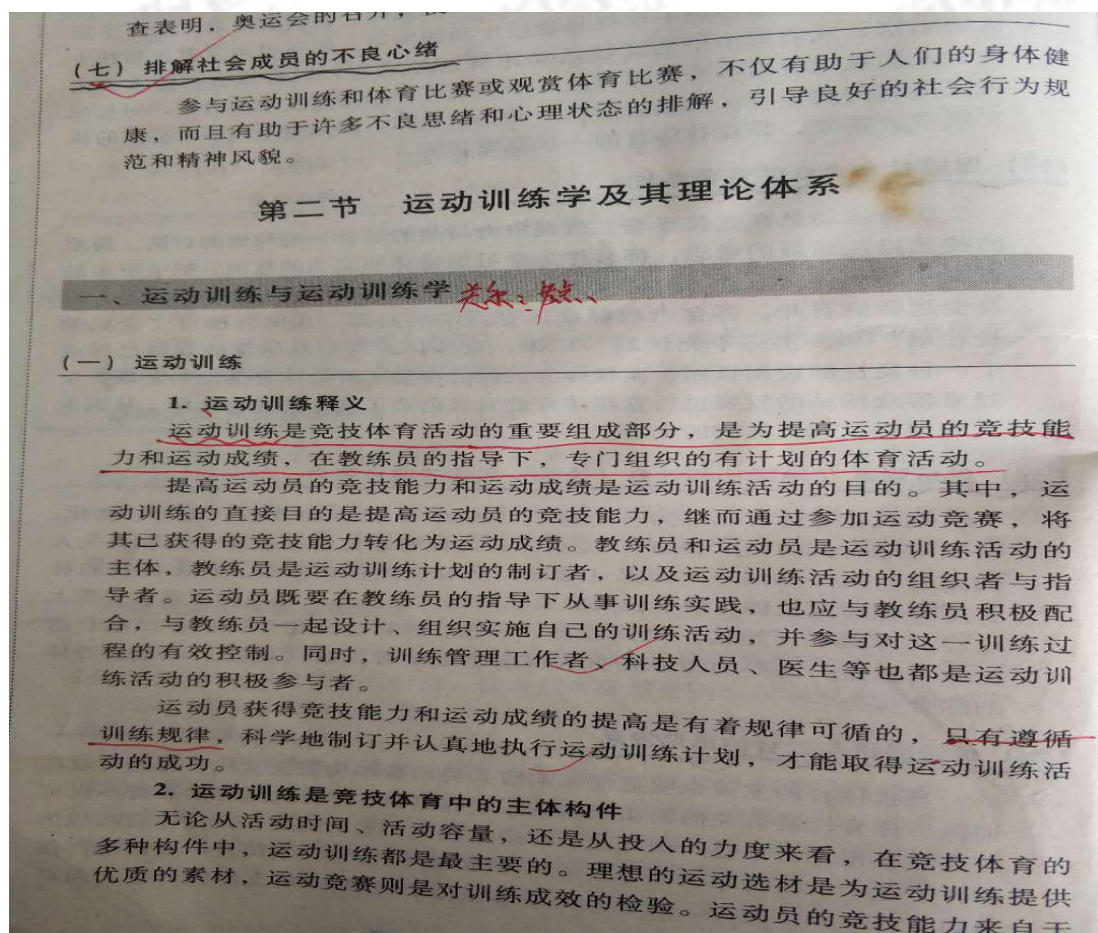 查表明，奥运会的召开，
（七）排解社会成员的不良心绪
参与运动训练和体育比赛或观赏体育比赛，不仅有助于人们的身体健
康，而且有助于许多不良思绪和心理状态的排解，引导良好的社会行为规
范和精神风貌。
第二节 运动训练学及其理论体系
一、运动训练与运动训练学
（一）运动训练
1. 运动训练释义
运动训练是竞技体育活动的重要组成部分，是为提高运动员的竞技能
力和运动成绩，在教练员的指导下，专门组织的有计划的体育活动。
提高运动员的竞技能力和运动成绩是运动训练活动的目的。其中，运
动训练的直接目的是提高运动员的竞技能力，继而通过参加运动竞赛，将
其已获得的竞技能力转化为运动成绩。教练员和运动员是运动训练活动的
主体，教练员是运动训练计划的制订者，以及运动训练活动的组织者与指
导者。运动员既要在教练员的指导下从事训练实践，也应与教练员积极配
合，与教练员一起设计、组织实施自己的训练活动，并参与对这一训练过
程的有效控制。同时，训练管理工作者、科技人员、医生等也都是运动训
练活动的积极参与者。
运动员获得竞技能力和运动成绩的提高是有着规律可循的，只有遵循
训练规律，科学地制订并认真地执行运动训练计划，才能取得运动训练活
动的成功。
2. 运动训练是竞技体育中的主体构件
无论从活动时间、活动容量，还是从投入的力度来看，在竞技体育的
多种构件中，运动训练都是最主要的。理想的运动选材是为运动训练提供
优质的素材，运动竞赛则是对训练成效的检验。运动员的竞技能力来自于